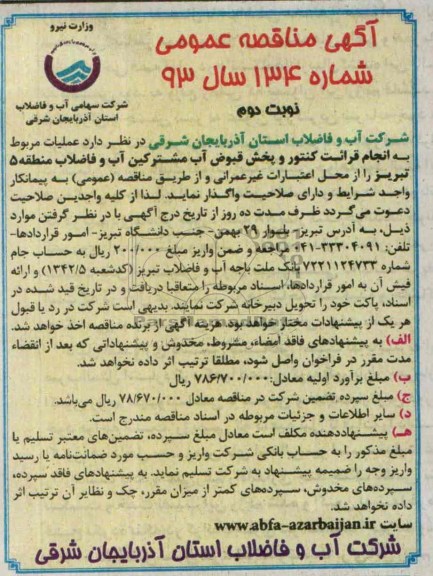 وزارت نیرو
شرکت سهامی آب و فاضلاب
استان آذربایجان شرقی
آگهی مناقصه عمومی
شماره ۱۳۴ سال ۹۳
نوبت دوم
شرکت آب و فاضلاب استان آذربایجان شرقی در نظر دارد عملیات مربوط
به انجام قرائت کنتور و پخش قبوض آب مشترکین آب و فاضلاب منطقه ۵
تبریز را از محل اعتبارات غیرعمرانی و از طریق مناقصه (عمومی) به پیمانکار
واجد شرایط و دارای صلاحیت واگذار نماید. لذا از کلیه واجدین صلاحیت
دعوت می‌گردد ظرف مدت ده روز از تاریخ درج آگهی با در نظر گرفتن موارد
ذیل، به آدرس تبریز- بلوار ۲۹ بهمن- جنب دانشگاه تبریز- امور قراردادها-
تلفن: ۳۳۳۰۴۰۹۱-۰۴۱ مراجعه و ضمن واریز مبلغ ۲۰۰/۰۰۰ ریال به حساب جام
شماره ۷۲۲۱۱۲۴۷۳۳ بانک ملت باجه آب و فاضلاب تبریز (کدشعبه ۱۳۴۲/۵) و ارائه
فیش آن به امور قراردادها، اسناد مربوطه را متعاقبا دریافت و در تاریخ قید شده در
اسناد، پاکت خود را تحویل دبیرخانه شرکت نمایند. بدیهی است شرکت در رد یا قبول
هر یک از پیشنهادات مختار خواهد بود. هزینه آگهی از برنده مناقصه اخذ خواهد شد.
الف) به پیشنهادهای فاقد امضاء، مشروط، مخدوش و پیشنهاداتی که بعد از انقضاء
مدت مقرر در فراخوان واصل شود، مطلقا ترتیب اثر داده نخواهد شد.
ب) مبلغ برآورد اولیه معادل: ۷۸۶/۷۰۰/۰۰۰ ریال
ج) مبلغ سپرده تضمین شرکت در مناقصه معادل ۷۸/۶۷۰/۰۰۰ ریال می‌باشد.
د) سایر اطلاعات و جزئیات مربوطه در اسناد مناقصه مندرج است.
هـ) پیشنهاددهنده مکلف است معادل مبلغ سپرده، تضمین‌های معتبر تسلیم یا
مبلغ مذکور را به حساب بانکی شرکت واریز و حسب مورد ضمانت‌نامه یا رسید
واریز وجه را ضمیمه پیشنهاد به شرکت تسلیم نماید. به پیشنهادهای فاقد سپرده،
سپرده‌های مخدوش، سپرده‌های کمتر از میزان مقرر، چک و نظایر آن ترتیب اثر
داده نخواهد شد.
سایت www.abfa-azarbaijan.ir
شرکت آب و فاضلاب استان آذربایجان شرقی